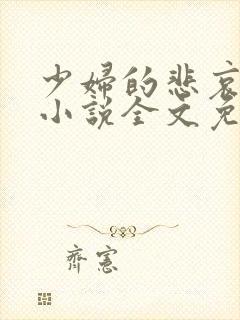 少婦的悲哀
小說全文免
齊憲